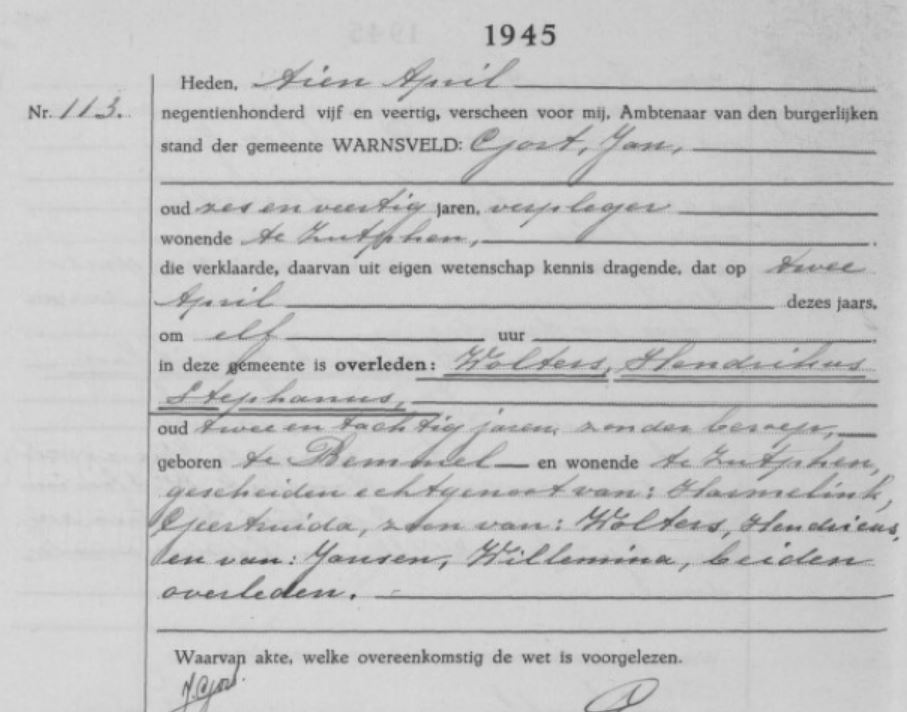 1945
Heden, tien April
Nr. 113.
negentienhonderd vijf en veertig, verscheen voor mij, Ambtenaar van den burgerlijken
stand der gemeente WARNSVELD: Gjort, Jan,
oud zes en veertig jaren, verpleger
wonende te Zutphen,
die verklaarde, daarvan uit eigen wetenschap kennis dragende, dat op twee
April dezes jaars,
om elf uur
in deze gemeente is overleden: Wolters, Hendrikus
Stephanus,
oud twee en tachtig jaren, zonder beroep,
geboren te Bemmel en wonende te Zutphen,
gescheiden echtgenoot van: Harmelink,
Geertruida, zoon van: Wolters, Hendricus,
en van: Jansen, Willemina, beiden
overleden.
Waarvan akte, welke overeenkomstig de wet is voorgelezen.
J. Gjort.